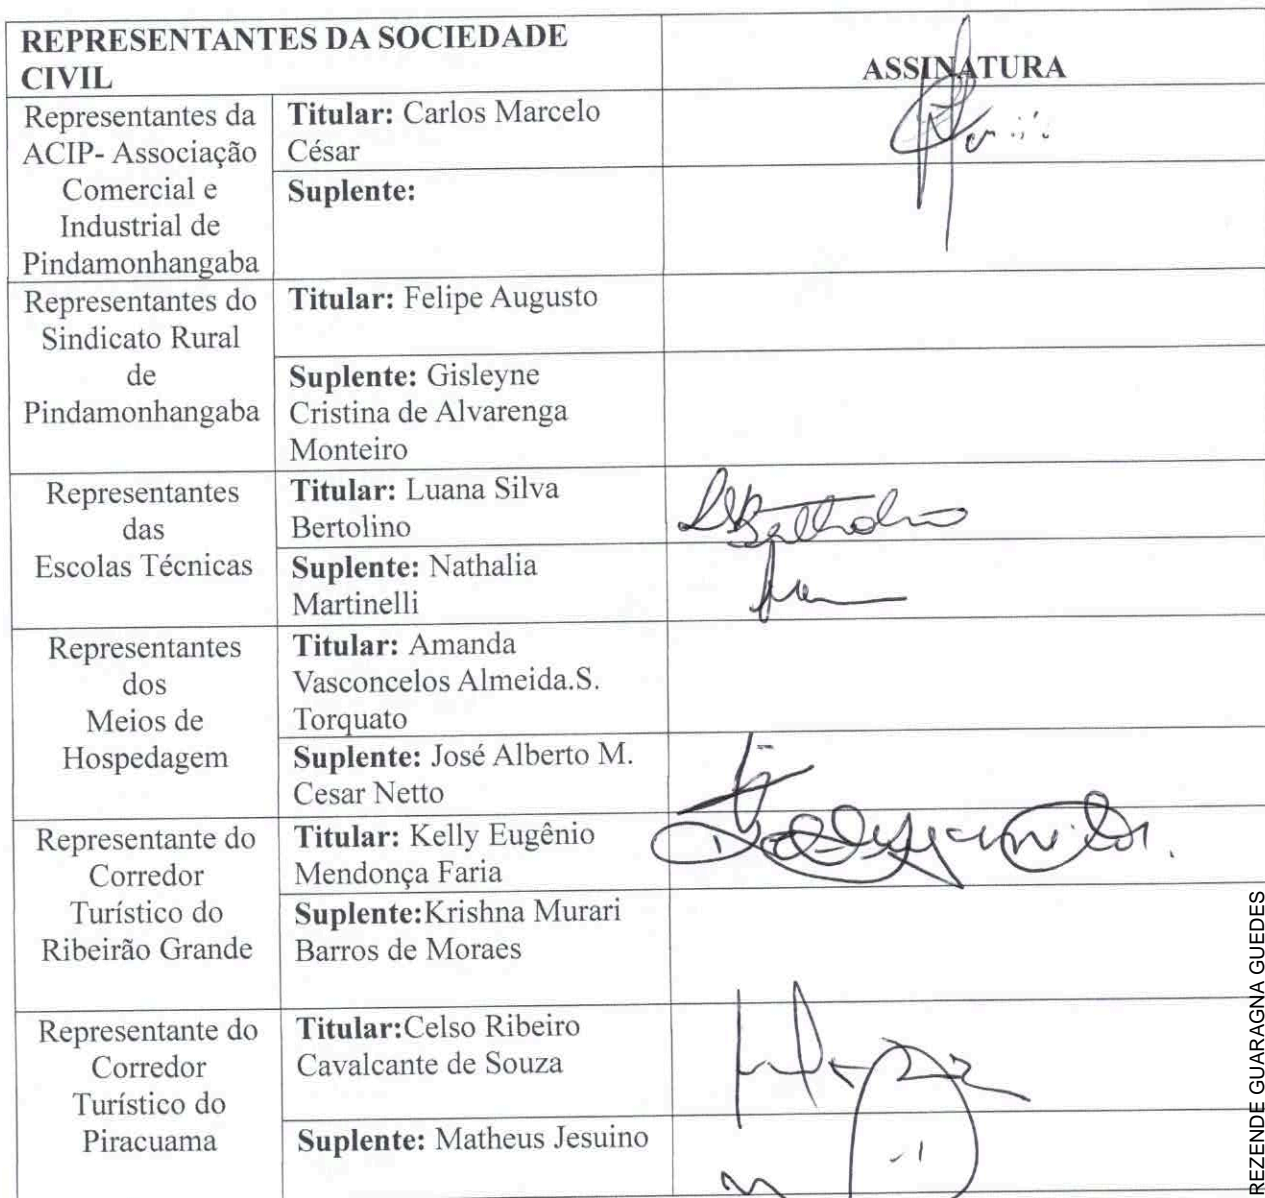 REPRESENTANTES DA SOCIEDADE
CIVIL
ASSINATURA
Representantes da
ACIP- Associação
Comercial e
Industrial de
Pindamonhangaba
Titular: Carlos Marcelo
César
Suplente:
Representantes do
Sindicato Rural
de
Pindamonhangaba
Titular: Felipe Augusto
Suplente: Gisleyne
Cristina de Alvarenga
Monteiro
Representantes
das
Escolas Técnicas
Titular: Luana Silva
Bertolino
Suplente: Nathalia
Martinelli
Representantes
dos
Meios de
Hospedagem
Titular: Amanda
Vasconcelos Almeida.S.
Torquato
Suplente: José Alberto M.
Cesar Netto
Representante do
Corredor
Turístico do
Ribeirão Grande
Titular: Kelly Eugênio
Mendonça Faria
Suplente:Krishna Murari
Barros de Moraes
Representante do
Corredor
Turístico do
Piracuama
Titular:Celso Ribeiro
Cavalcante de Souza
Suplente: Matheus Jesuino
REZENDE GUARAGNA GUEDES